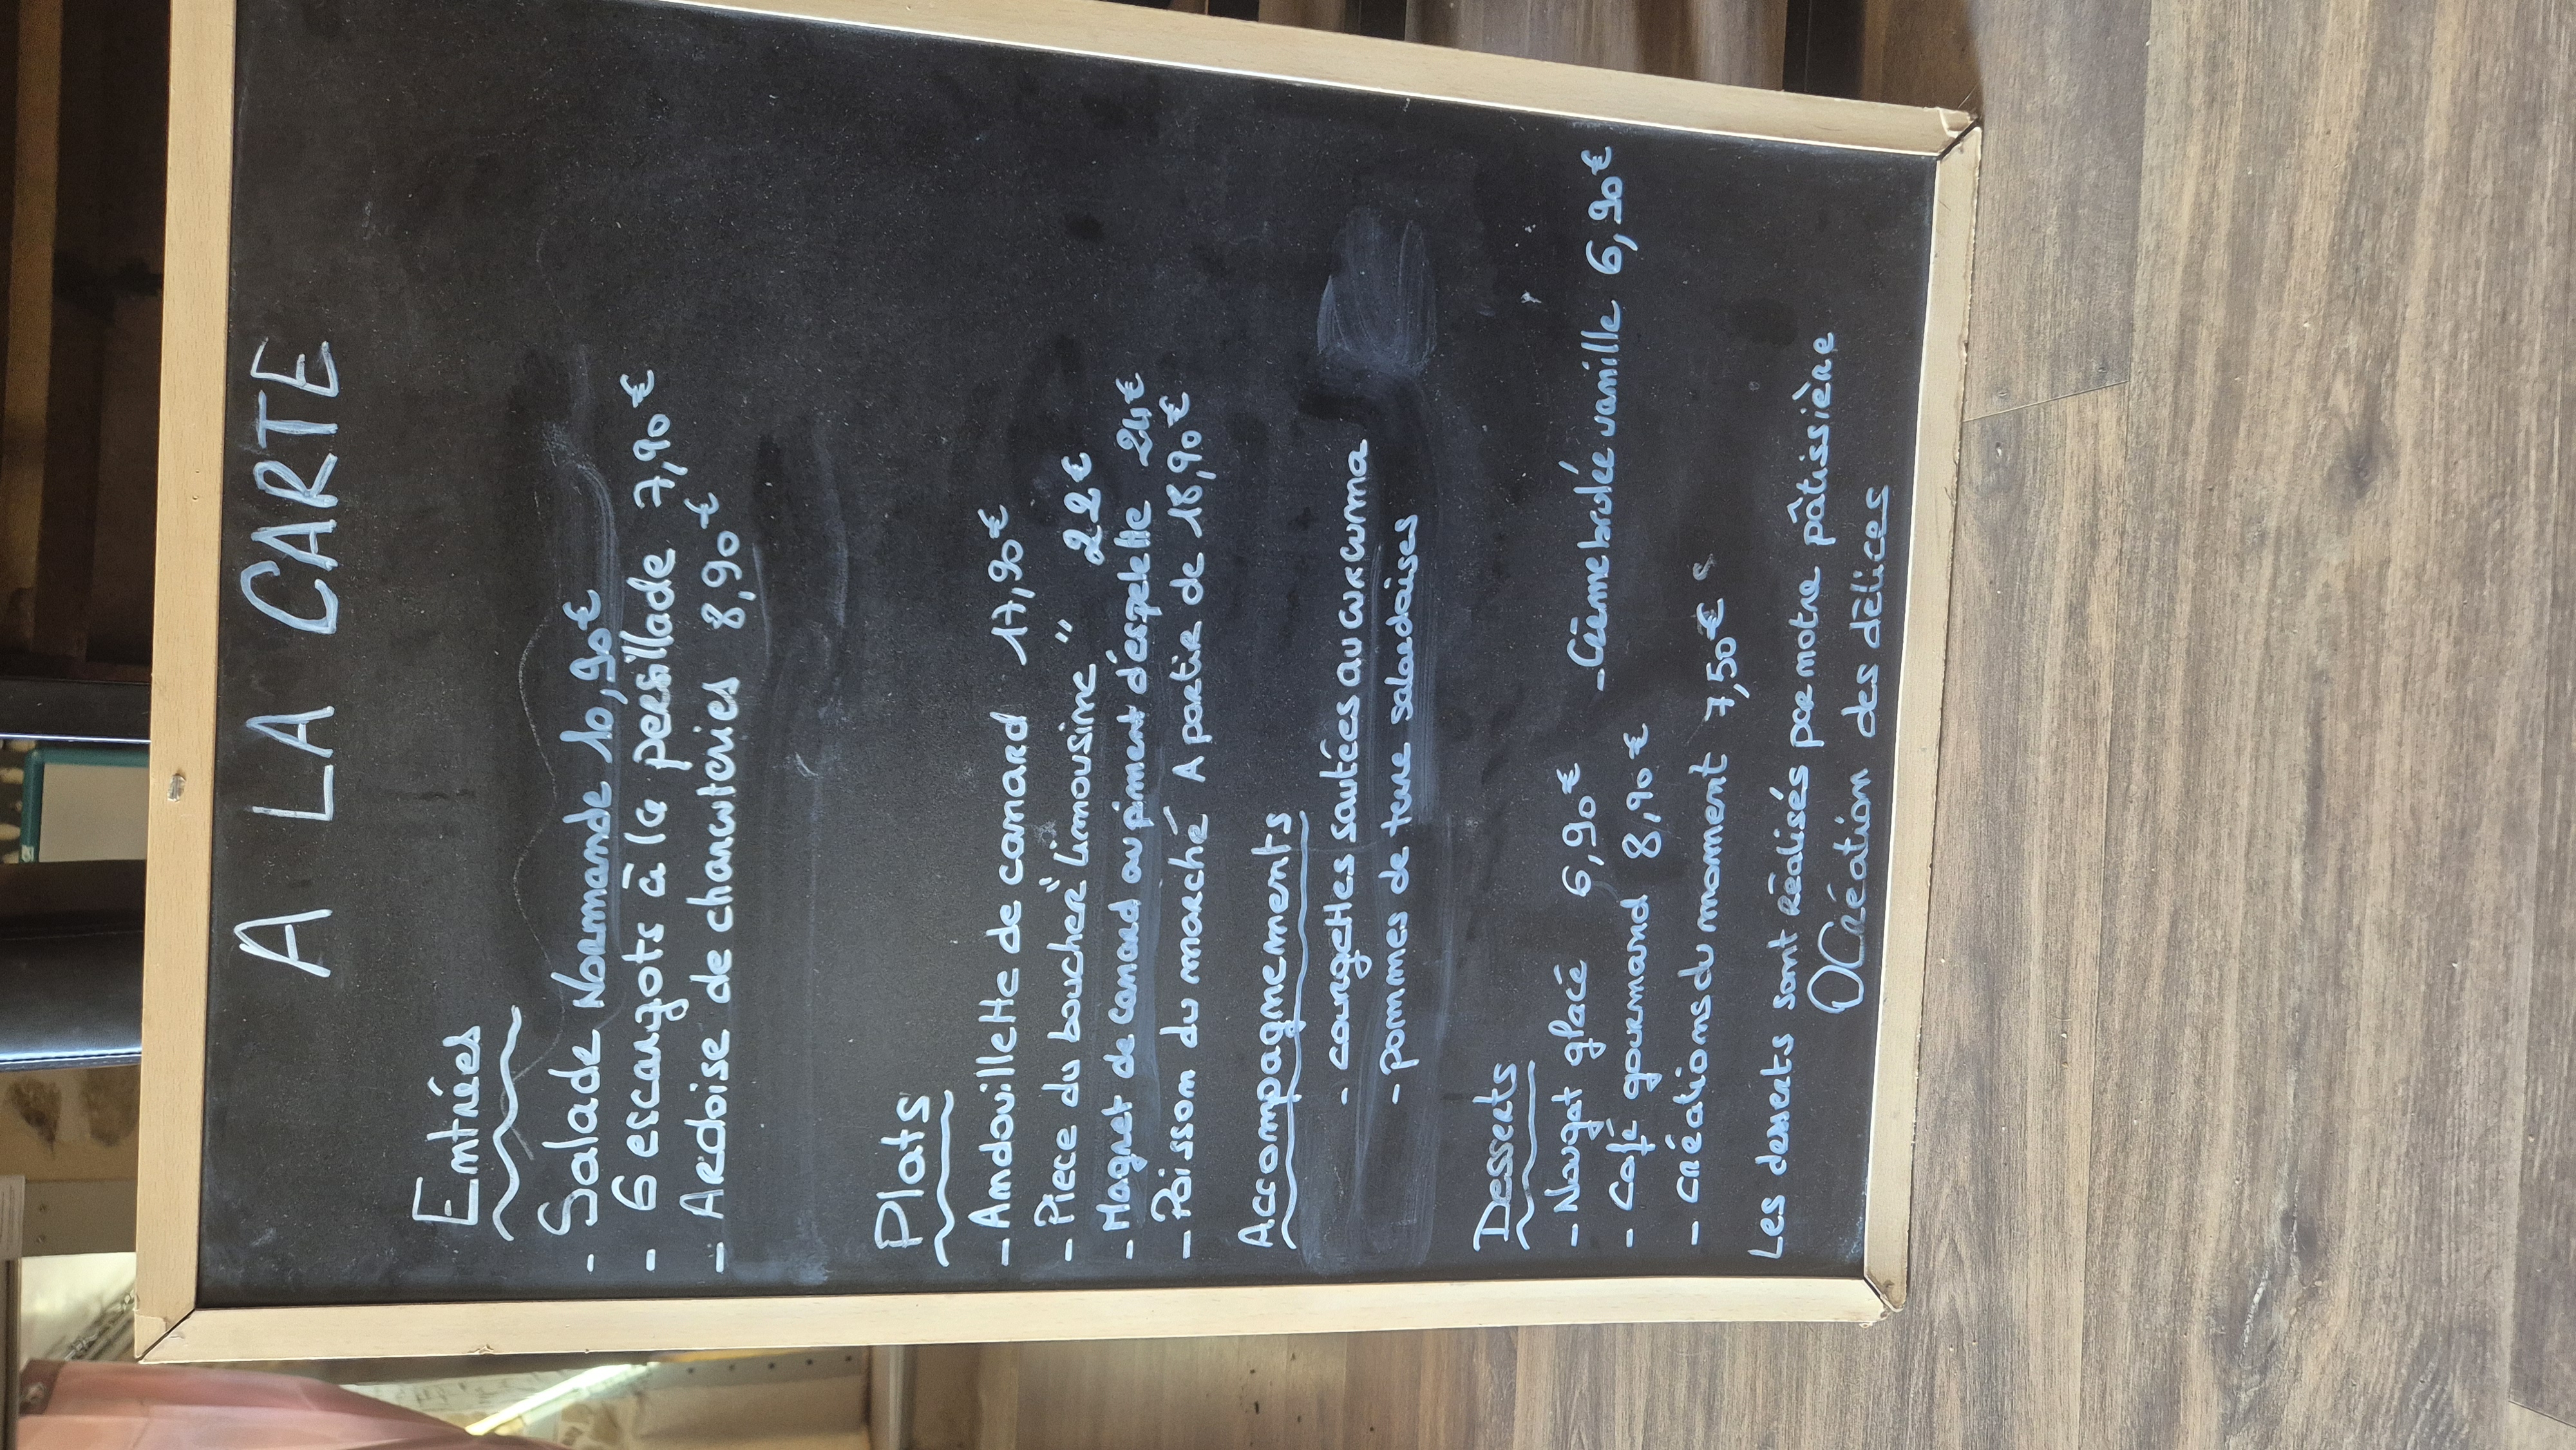 A LA CARTE
Entrées
- Salade Normande 10,90€
- 6 escargots à la persillade 7,90€
- Ardoise de charcuteries 8,90€
Plats
- Andouillette de canard 17,90€
- Piece du boucher "Limousine" 22€
- Magret de canard au piment déspelette 24€
- Poisson du marché A partir de 18,90€
Accompagnements
- courgettes sautées au curcuma
- pommes de terre salardaises
Desserts
- Nougat glacé 6,90€ - Crème brulée vanille 6,90€
- Café gourmand 8,90€
- créations du moment 7,50€
Les desserts sont réalisés par notre pâtissière
OCréation des délices